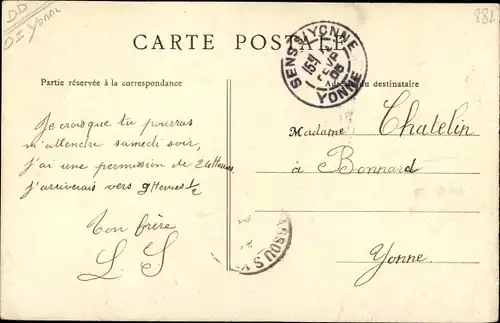 DD
DI Yonne
882
CARTE POSTALE
SENS S/YONNE
YONNE
15
FEVR
05
Partie réservée à la correspondance
Adresse du destinataire
Je crois que tu pourras
m'attendre samedi soir,
j'ai une permission de 24 Heures,
j'arriverais vers 9 Heures
Ton frère
L. S
Madame Chatelin
à Bonnard
Yonne.